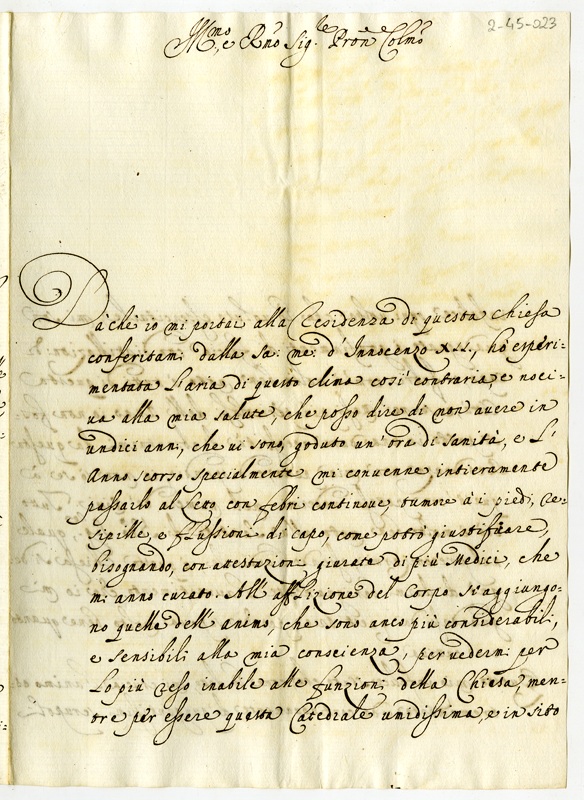 2-45-023
Illmo, e Rmo Sig.re Prone Colmo
Dà chè io mi portai alla Residenza di questa Chiesa
conferitami dalla sa: me: d'Innocenzo XII, hò esperi-
mentata l'aria di questo clima così contraria e noci-
va alla mia salute, che posso dire di non avere in
undici anni, che vi sono, goduto un'ora di sanità, e l'
Anno scorso specialmente mi convenne intieramente
passarlo al letto con febri continove, tumore à i piedi, re-
sipille, e flussioni di capo, come potrò giustificare,
bisognando, con attestazioni giurate di più Medici, che
mi anno curato. All'afflizione del Corpo s'aggiungo-
no quelle dell'animo, che sono anco più considerabili,
e sensibili alla mia conscienza, per vedermi per
lo più reso inabile alle funzioni della Chiesa, men-
tre per essere questa Catedrale umidissima, e in sito